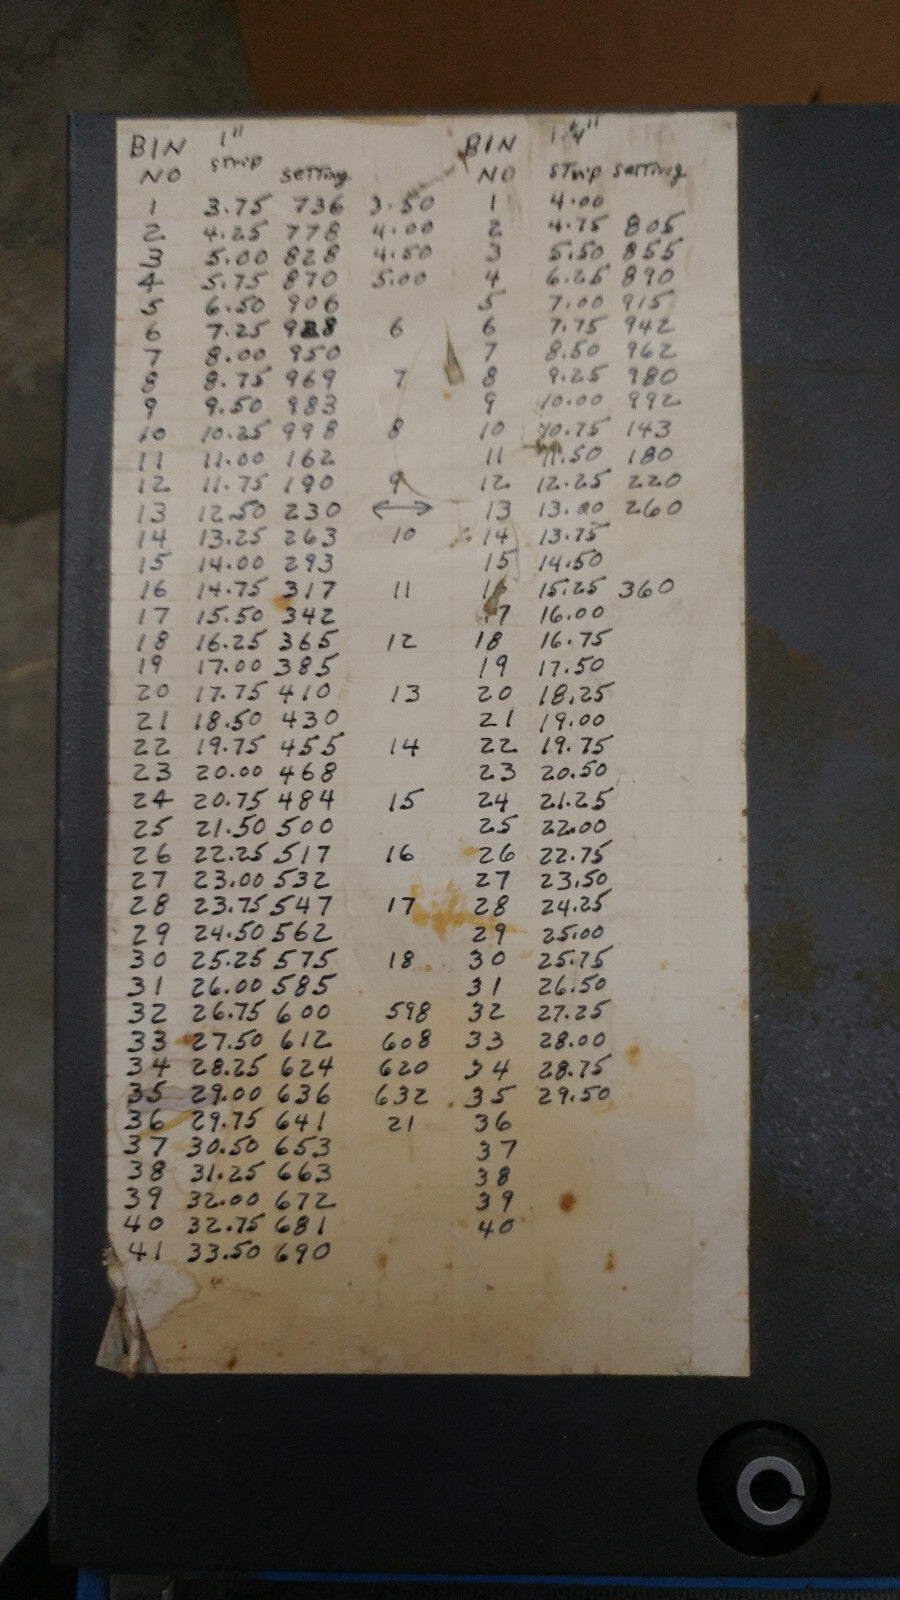 BIN 1" BIN 1¼"
NO strip setting NO strip setting
1 3.75 736 3.50 1 4.00
2 4.25 778 4.00 2 4.75 805
3 5.00 828 4.50 3 5.50 855
4 5.75 870 5.00 4 6.25 890
5 6.50 906 5 7.00 915
6 7.25 928 6 6 7.75 942
7 8.00 950 7 8.50 962
8 8.75 969 7 8 9.25 980
9 9.50 983 9 10.00 992
10 10.25 998 8 10 10.75 143
11 11.00 162 11 11.50 180
12 11.75 190 9 12 12.25 220
13 12.50 230 ↔ 13 13.00 260
14 13.25 263 10 14 13.75
15 14.00 293 15 14.50
16 14.75 317 11 16 15.25 360
17 15.50 342 17 16.00
18 16.25 365 12 18 16.75
19 17.00 385 19 17.50
20 17.75 410 13 20 18.25
21 18.50 430 21 19.00
22 19.75 455 14 22 19.75
23 20.00 468 23 20.50
24 20.75 484 15 24 21.25
25 21.50 500 25 22.00
26 22.25 517 16 26 22.75
27 23.00 532 27 23.50
28 23.75 547 17 28 24.25
29 24.50 562 29 25.00
30 25.25 575 18 30 25.75
31 26.00 585 31 26.50
32 26.75 600 598 32 27.25
33 27.50 612 608 33 28.00
34 28.25 624 620 34 28.75
35 29.00 636 632 35 29.50
36 29.75 641 21 36
37 30.50 653 37
38 31.25 663 38
39 32.00 672 39
40 32.75 681 40
41 33.50 690